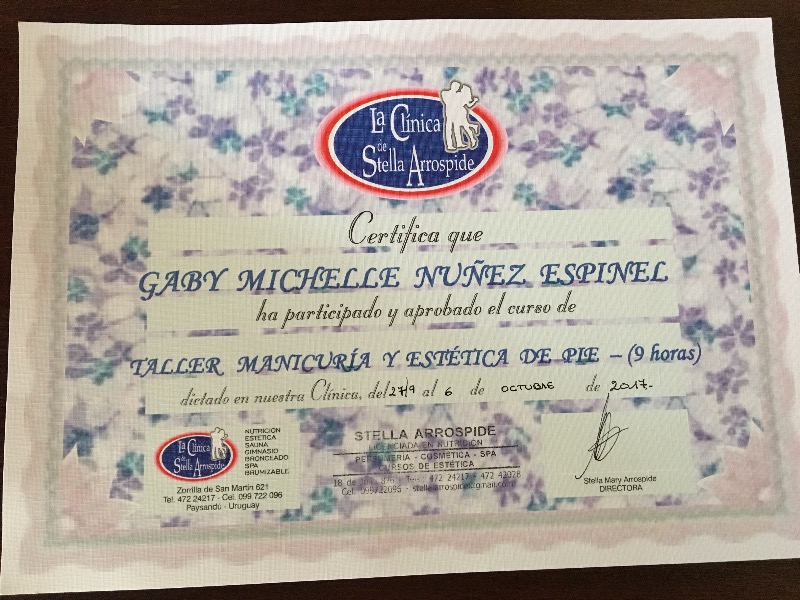 La Clínica
de
Stella Arrospide
Certifica que
GABY MICHELLE NUÑEZ ESPINEL
ha participado y aprobado el curso de
TALLER MANICURÍA Y ESTÉTICA DE PIE – (9 horas)
dictado en nuestra Clínica, del 27/9 al 6 de OCTUBRE de 2017.-
La Clínica
de
Stella Arrospide
NUTRICION
ESTETICA
SAUNA
GIMNASIO
BRONCEADO
SPA
BRUMIZABLE
Zorrilla de San Martín 621
Tel. 472 24217 - Cel. 099 722 096
Paysandú - Uruguay
STELLA ARROSPIDE
LICENCIADA EN NUTRICIÓN
PERFUMERIA - COSMETICA - SPA
CURSOS DE ESTÉTICA
18 de 472 24217 - 472 42028
Cel. 099722096 - stellaarrospide@gmail.com
Stella Mary Arrospide
DIRECTORA